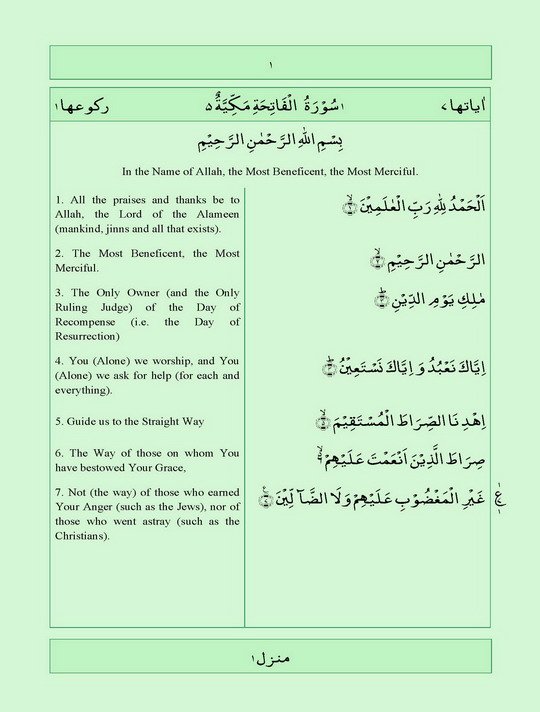 ۱
اٰیاتها ۷ ۱ سُوْرَةُ الْفَاتِحَةِ مَكِّيَّةٌ ۵ رکوعها ۱
بِسْمِ اللّٰهِ الرَّحْمٰنِ الرَّحِيْمِ
In the Name of Allah, the Most Beneficent, the Most Merciful.
1. All the praises and thanks be to
Allah, the Lord of the Alameen
(mankind, jinns and all that exists).
2. The Most Beneficent, the Most
Merciful.
3. The Only Owner (and the Only
Ruling Judge) of the Day of
Recompense (i.e. the Day of
Resurrection)
4. You (Alone) we worship, and You
(Alone) we ask for help (for each and
everything).
5. Guide us to the Straight Way
6. The Way of those on whom You
have bestowed Your Grace,
7. Not (the way) of those who earned
Your Anger (such as the Jews), nor of
those who went astray (such as the
Christians).
اَلْحَمْدُ لِلّٰهِ رَبِّ الْعٰلَمِيْنَ
الرَّحْمٰنِ الرَّحِيْمِ
مٰلِكِ يَوْمِ الدِّيْنِ
اِيَّاكَ نَعْبُدُ وَ اِيَّاكَ نَسْتَعِيْنُ
اِهْدِنَا الصِّرَاطَ الْمُسْتَقِيْمَ
صِرَاطَ الَّذِيْنَ اَنْعَمْتَ عَلَيْهِمْ
غَيْرِ الْمَغْضُوْبِ عَلَيْهِمْ وَلَا الضَّآلِّيْنَ
منزل ۱